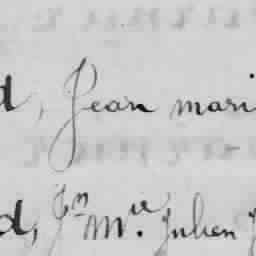 d, Jean mari
d, Jn Mie. Julien J